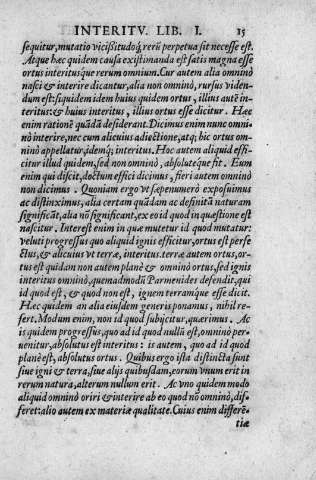 INTERITV LIB. I. 15
sequitur, mutatio vicißitudoq́; rerū perpetua sit necesse est.
Atque hæc quidem causa existimanda est satis magna esse
ortus interitusq́ue rerum omnium. Cur autem alia omninò
nasci & interire dicantur, alia non omninò, rursus videndum
est: siquidem idem huius quidem ortus, illius autē interitus:
& huius interitus, illius ortus esse dicitur. Hæc
enim rationē quādā desiderant. Dicimus enim nunc omninò
interire, nec cum alicuius adiectione, atq; hic ortus omninò
appellatur, idemq́; interitus. Hoc autem aliquid efficitur
illud quidem, sed non omninò, absoluteq́ue fit. Eum
enim qui discit, doctum effici dicimus, fieri autem omninò
non dicimus. Quoniam ergo vt sæpenumerò exposuimus
ac distinximus, alia certam quādam ac definitā naturam
significāt, alia nō significant, ex eo id quod in quæstione est
nascitur. Interest enim in quæ mutetur id quod mutatur:
veluti progressus quo aliquid ignis efficitur, ortus est perfectus,
& alicuius vt terræ, interitus. terræ autem ortus, ortus
est quidam non autem planè & omninò ortus, sed ignis
interitus omninò, quemadmodū Parmenides defendit, qui
id quod est, & quod non est, ignem terramque esse dicit.
Hæc quidem an alia eiusdem generis ponamus, nihil refert.
Modum enim, non id quod subijcitur, quærimus. Ac
is quidem progressus, quo ad id quod nullū est, omninò peruenitur,
absolutus est interitus: is autem, quo ad id quod
planè est, absolutus ortus. Quibus ergo ista distincta sunt
siue igni & terra, siue alijs quibusdam, eorum vnum erit in
rerum natura, alterum nullum erit. Ac vno quidem modo
aliquid omninò oriri & interire ab eo quod nō omninò, differet:
alio autem ex materiæ qualitate. Cuius enim differē-
tiæ